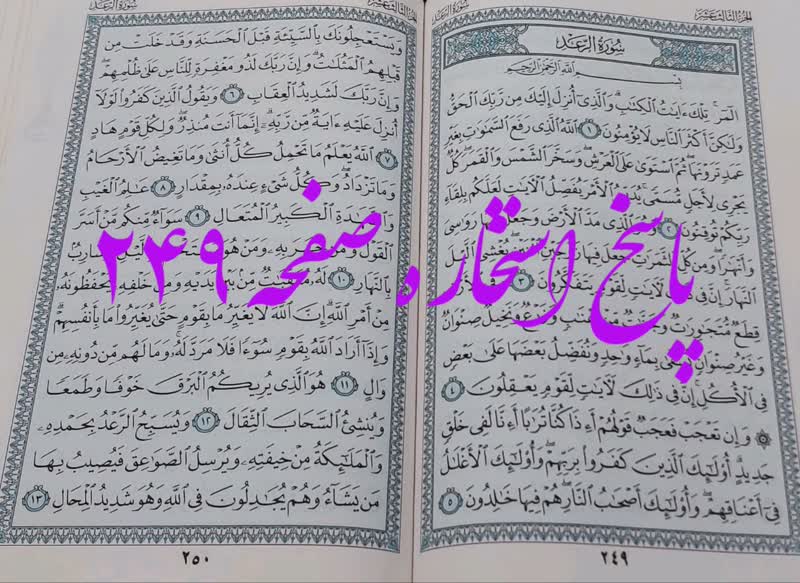 الجزء الثالث عشر
سُورَةُ الرَّعْدِ
سُورَةُ الرَّعْدِ
بِسْمِ اللَّهِ الرَّحْمَٰنِ الرَّحِيمِ
الٓمٓرۚ تِلْكَ ءَايَٰتُ ٱلْكِتَٰبِۗ وَٱلَّذِىٓ أُنزِلَ إِلَيْكَ مِن رَّبِّكَ ٱلْحَقُّ
وَلَٰكِنَّ أَكْثَرَ ٱلنَّاسِ لَا يُؤْمِنُونَ ١ ٱللَّهُ ٱلَّذِى رَفَعَ ٱلسَّمَٰوَٰتِ بِغَيْرِ
عَمَدٍ تَرَوْنَهَاۖ ثُمَّ ٱسْتَوَىٰ عَلَى ٱلْعَرْشِۖ وَسَخَّرَ ٱلشَّمْسَ وَٱلْقَمَرَۖ كُلٌّ
يَجْرِى لِأَجَلٍ مُّسَمًّىۚ يُدَبِّرُ ٱلْأَمْرَ يُفَصِّلُ ٱلْءَايَٰتِ لَعَلَّكُم بِلِقَآءِ
رَبِّكُمْ تُوقِنُونَ ٢ وَهُوَ ٱلَّذِى مَدَّ ٱلْأَرْضَ وَجَعَلَ فِيهَا رَوَٰسِىَ
وَأَنْهَٰرًاۖ وَمِن كُلِّ ٱلثَّمَرَٰتِ جَعَلَ فِيهَا زَوْجَيْنِ ٱثْنَيْنِۖ يُغْشِى ٱلَّيْلَ
ٱلنَّهَارَۚ إِنَّ فِى ذَٰلِكَ لَءَايَٰتٍ لِّقَوْمٍ يَتَفَكَّرُونَ ٣ وَفِى ٱلْأَرْضِ
قِطَعٌ مُّتَجَٰوِرَٰتٌ وَجَنَّٰتٌ مِّنْ أَعْنَٰبٍ وَزَرْعٌ وَنَخِيلٌ صِنْوَانٌ
وَغَيْرُ صِنْوَانٍ يُسْقَىٰ بِمَآءٍ وَٰحِدٍ وَنُفَضِّلُ بَعْضَهَا عَلَىٰ بَعْضٍ
فِى ٱلْأُكُلِۚ إِنَّ فِى ذَٰلِكَ لَءَايَٰتٍ لِّقَوْمٍ يَعْقِلُونَ ٤
۞ وَإِن تَعْجَبْ فَعَجَبٌ قَوْلُهُمْ أَءِذَا كُنَّا تُرَٰبًا أَءِنَّا لَفِى خَلْقٍ
جَدِيدٍۗ أُو۟لَٰٓئِكَ ٱلَّذِينَ كَفَرُوا۟ بِرَبِّهِمْۖ وَأُو۟لَٰٓئِكَ ٱلْأَغْلَٰلُ
فِىٓ أَعْنَاقِهِمْۖ وَأُو۟لَٰٓئِكَ أَصْحَٰبُ ٱلنَّارِۖ هُمْ فِيهَا خَٰلِدُونَ ٥
٢٤٩
سُورَةُ الرَّعْدِ
الجزء الثالث عشر
وَيَسْتَعْجِلُونَكَ بِٱلسَّيِّئَةِ قَبْلَ ٱلْحَسَنَةِ وَقَدْ خَلَتْ مِن
قَبْلِهِمُ ٱلْمَثُلَٰتُۗ وَإِنَّ رَبَّكَ لَذُو مَغْفِرَةٍ لِّلنَّاسِ عَلَىٰ ظُلْمِهِمْۖ
وَإِنَّ رَبَّكَ لَشَدِيدُ ٱلْعِقَابِ ٦ وَيَقُولُ ٱلَّذِينَ كَفَرُوا۟ لَوْلَآ
أُنزِلَ عَلَيْهِ ءَايَةٌ مِّن رَّبِّهِۦٓۗ إِنَّمَآ أَنتَ مُنذِرٌۖ وَلِكُلِّ قَوْمٍ هَادٍ
٧ ٱللَّهُ يَعْلَمُ مَا تَحْمِلُ كُلُّ أُنثَىٰ وَمَا تَغِيضُ ٱلْأَرْحَامُ
وَمَا تَزْدَادُۖ وَكُلُّ شَىْءٍ عِندَهُۥ بِمِقْدَارٍ ٨ عَٰلِمُ ٱلْغَيْبِ
وَٱلشَّهَٰدَةِ ٱلْكَبِيرُ ٱلْمُتَعَالِ ٩ سَوَآءٌ مِّنكُم مَّنْ أَسَرَّ
ٱلْقَوْلَ وَمَن جَهَرَ بِهِۦ وَمَنْ هُوَ مُسْتَخْفٍۭ بِٱلَّيْلِ وَسَارِبٌۢ
بِٱلنَّهَارِ ١٠ لَهُۥ مُعَقِّبَٰتٌ مِّنۢ بَيْنِ يَدَيْهِ وَمِنْ خَلْفِهِۦ يَحْفَظُونَهُۥ
مِنْ أَمْرِ ٱللَّهِۗ إِنَّ ٱللَّهَ لَا يُغَيِّرُ مَا بِقَوْمٍ حَتَّىٰ يُغَيِّرُوا۟ مَا بِأَنفُسِهِمْۗ
وَإِذَآ أَرَادَ ٱللَّهُ بِقَوْمٍ سُوٓءًا فَلَا مَرَدَّ لَهُۥۚ وَمَا لَهُم مِّن دُونِهِۦ مِن
وَالٍ ١١ هُوَ ٱلَّذِى يُرِيكُمُ ٱلْبَرْقَ خَوْفًا وَطَمَعًا
وَيُنشِئُ ٱلسَّحَابَ ٱلثِّقَالَ ١٢ وَيُسَبِّحُ ٱلرَّعْدُ بِحَمْدِهِۦ
وَٱلْمَلَٰٓئِكَةُ مِنْ خِيفَتِهِۦ وَيُرْسِلُ ٱلصَّوَٰعِقَ فَيُصِيبُ بِهَا
مَن يَشَآءُ وَهُمْ يُجَٰدِلُونَ فِى ٱللَّهِ وَهُوَ شَدِيدُ ٱلْمِحَالِ ١٣
٢٥٠
پاسخ استخاره صفحه ۲۴۹